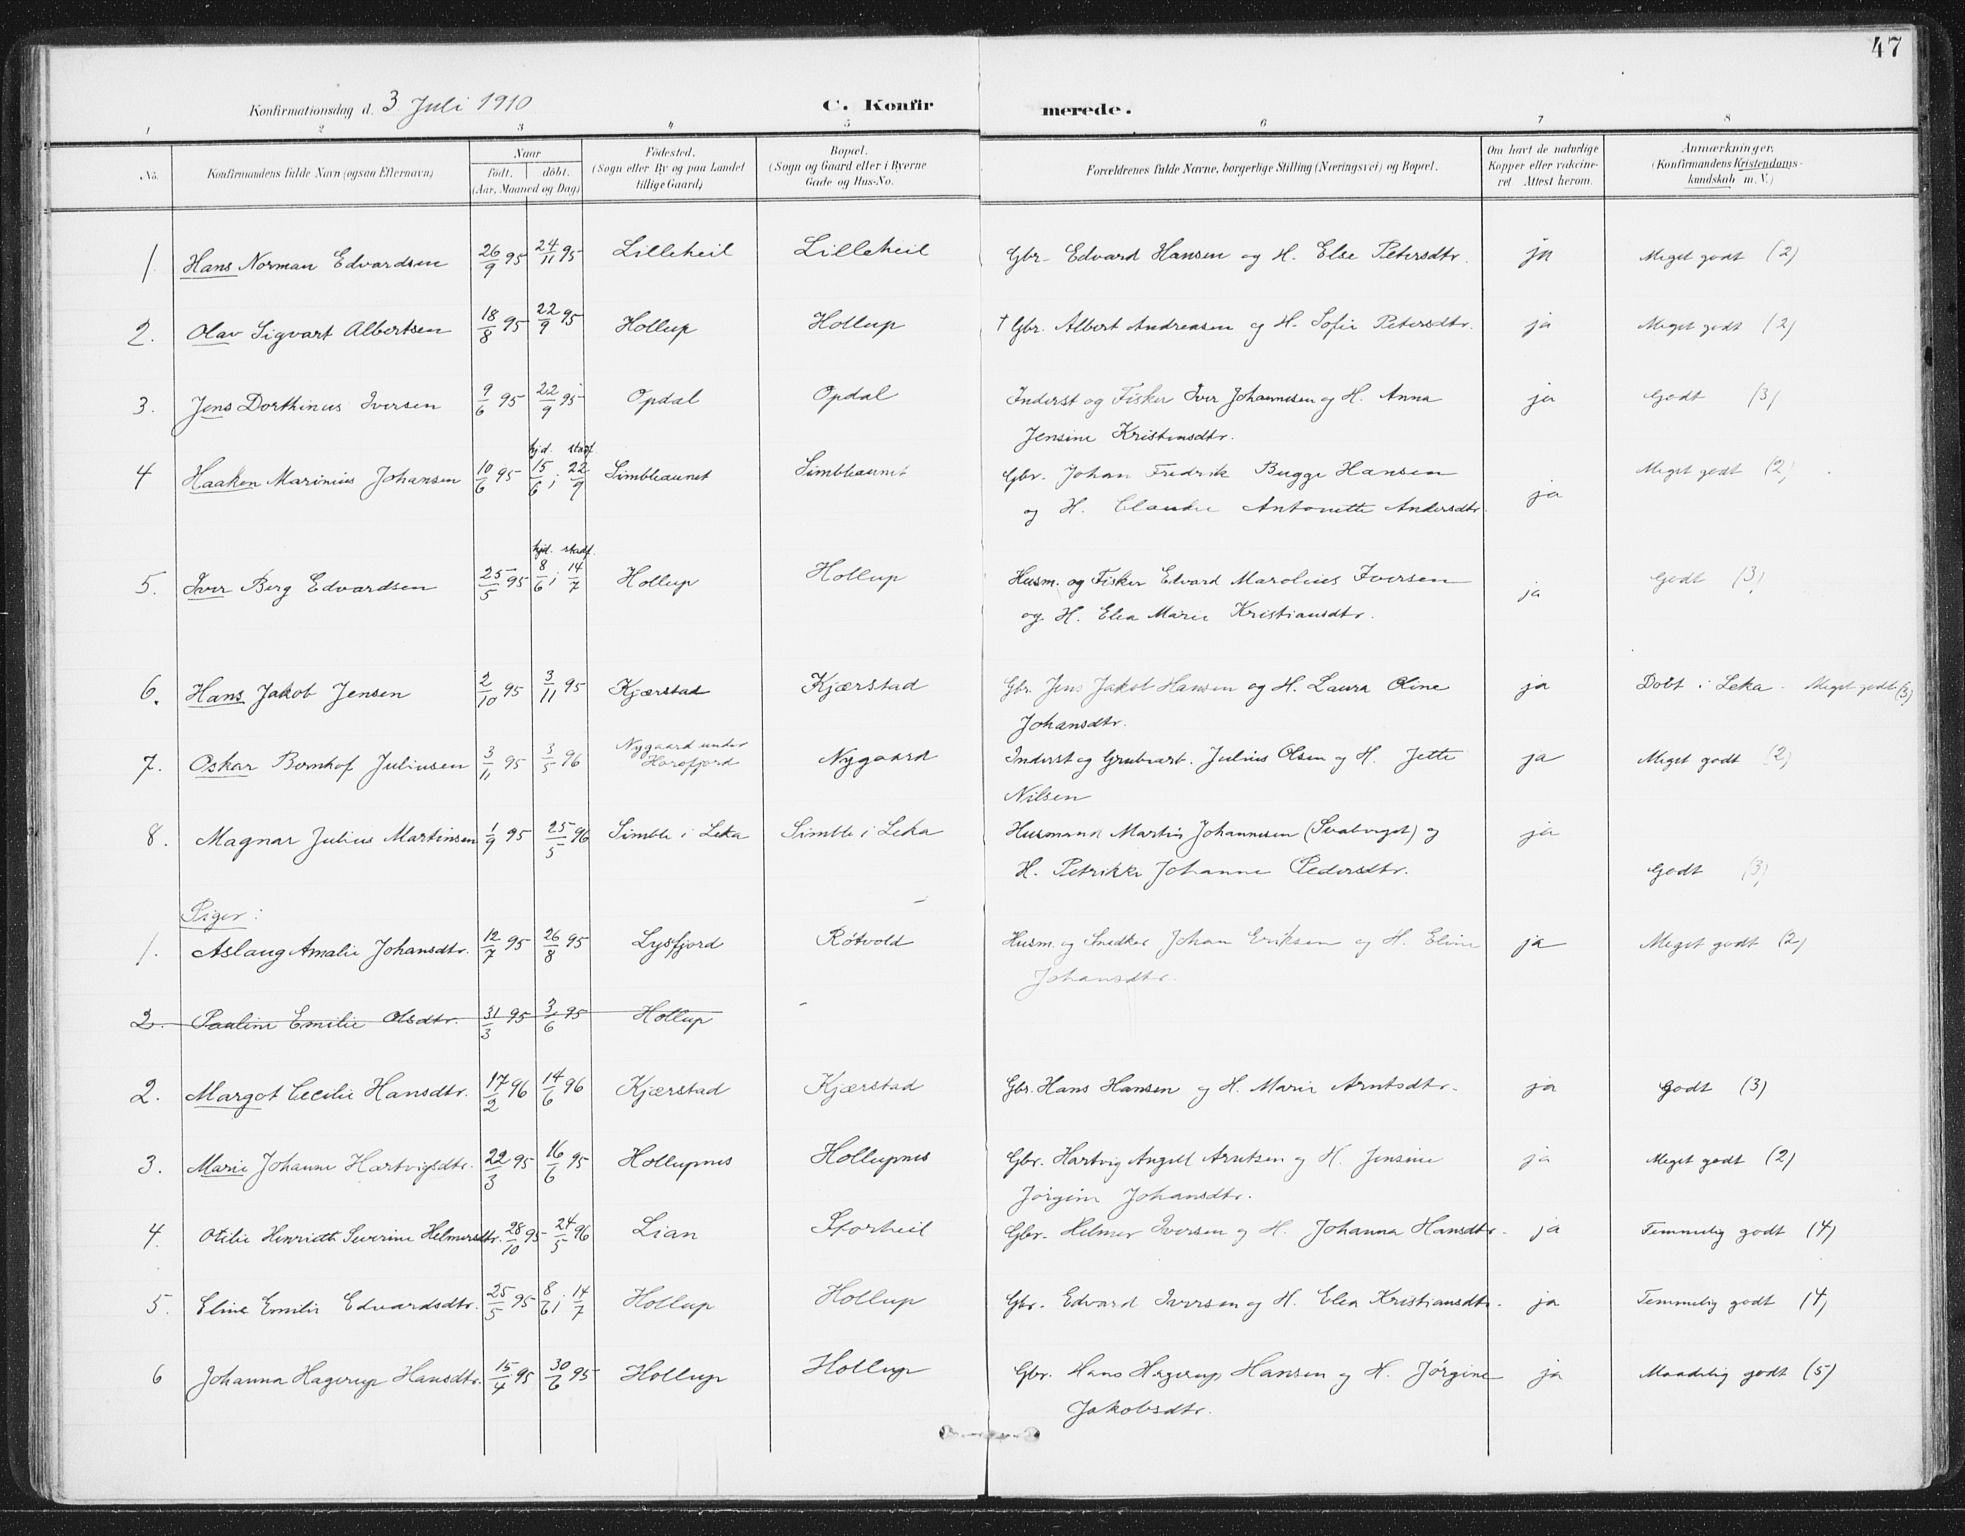 47
Konfirmationsdag d. 3 Juli 1910 C. Konfirmerede.
1 2 3 4 5 6 7 8
No. Konfirmandens fulde Navn (ogsaa Efternavn) Naar født. døbt. (Aar, Maaned og Dag) Fødested. (Sogn eller By og paa Landet tillige Gaard) Bopæl. (Sogn og Gaard eller i Byerne Gade og Hus-No. Forældrenes fulde Navne, borgerlige Stilling (Næringsvei) og Bopæl. Om havt de naturlige Kopper eller vakcineret. Attest herom. Anmærkninger. (Konfirmandens Kristendomskundskab m. V.)
1 Hans Norman Edvardsen 26/9 95 24/11 95 Lilleheil Lilleheil Gbr. Edvard Hansen og H. Else Petersdtr. ja Meget godt (2)
2. Olav Sigvart Albertsen 18/8 95 22/9 95 Hollup Hollup † Gbr. Albert Andreasen og H. Sofie Petersdtr. ja Meget godt (2)
3. Jens Dorthinus Iversen 9/6 95 22/9 95 Opdal Opdal Inderst og Fisker Iver Johannesen og H. Anna ja Godt (3)
Jensine Kristensdtr.
hjd. stadf.
4 Haaken Marinius Johansen 10/6 95 15/6; 22/9 Simbleaunet Simbleaunet Gbr. Johan Fredrik Bugge Hansen Meget godt (2)
og H. Claudie Antonette Andersdtr. ja
hjd. stadf.
5. Iver Berg Edvardsen 25/5 95 8/6; 14/7 Hollup Hollup Husm. og Fisker Edvard Marolius Iversen ja Godt (3)
og H. Elea Marie Kristiansdtr.
6. Hans Jakob Jensen 2/10 95 3/11 95 Kjærstad Kjærstad Gbr. Jens Jakob Hansen og H. Laura Oline ja Døbt i Leka. Meget godt (3)
Johansdtr.
7. Oskar Bernhof Juliusen 3/11 95 3/5 96 Nygaard under Horsfjord Nygaard Inderst og Grubearb. Julius Olsen og H. Jette ja Meget godt (2)
Nilsen
8. Magnar Julius Martinsen 1/9 95 25/5 96 Simble i Leka Simble i Leka Husmand Martin Johannesen (Svalviget) og ja
H. Petrikke Johanne Pedersdtr. Godt (3)
Piger:
1. Aslaug Amalie Johansdtr. 12/7 95 26/8 95 Lysfjord Røtvold Husm. og Snedker Johan Eriksen og H. Eline ja Meget godt (2)
Johansdtr.
2. Pauline Emilie Olsdtr. 31/3 95 3/6 95 Hollup
2. Margot Cecilie Hansdtr. 17/2 96 14/6 96 Kjærstad Kjærstad Gbr. Hans Hansen og H. Marie Arntsdtr. ja Godt (3)
3. Marie Johanne Hartvigsdtr. 22/3 95 16/6 95 Hollupnes Hollupnes Gbr. Hartvig Angell Arntsen og H. Jensine ja Meget godt (2)
Jørgine Johansdtr.
4. Otilie Henriette Severine Helmersdtr. 28/10 95 24/5 96 Lian Storheil Gbr. Helmer Iversen og H. Johanna Hansdtr. ja Temmelig godt (4)
5. Eline Emilie Edvardsdtr. 25/5 95 8/6; 14/7 Hollup Hollup Gbr. Edvard Iversen og H. Elea Kristiansdtr. ja Temmelig godt (4)
6 Johanna Hagerup Hansdtr. 15/4 95 30/6 95 Hollup Hollup Gbr. Hans Hagerup Hansen og H. Jørgine ja Maadelig godt (5)
Jakobsdtr.